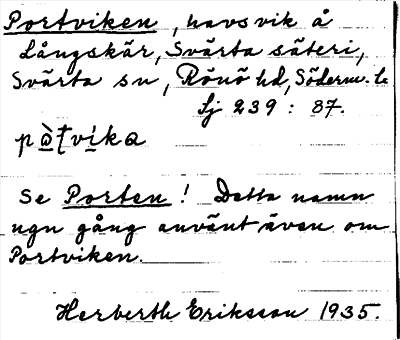 Portviken, havsvik å
Långskär, Svärta säteri,
Svärta sn, Rönö hd, Söderm. l.
Sj 239 : 87.
pàt̨vika
Se Porten! Detta namn
ngn gång använt även om
Portviken.
Herberth Eriksson 1935.